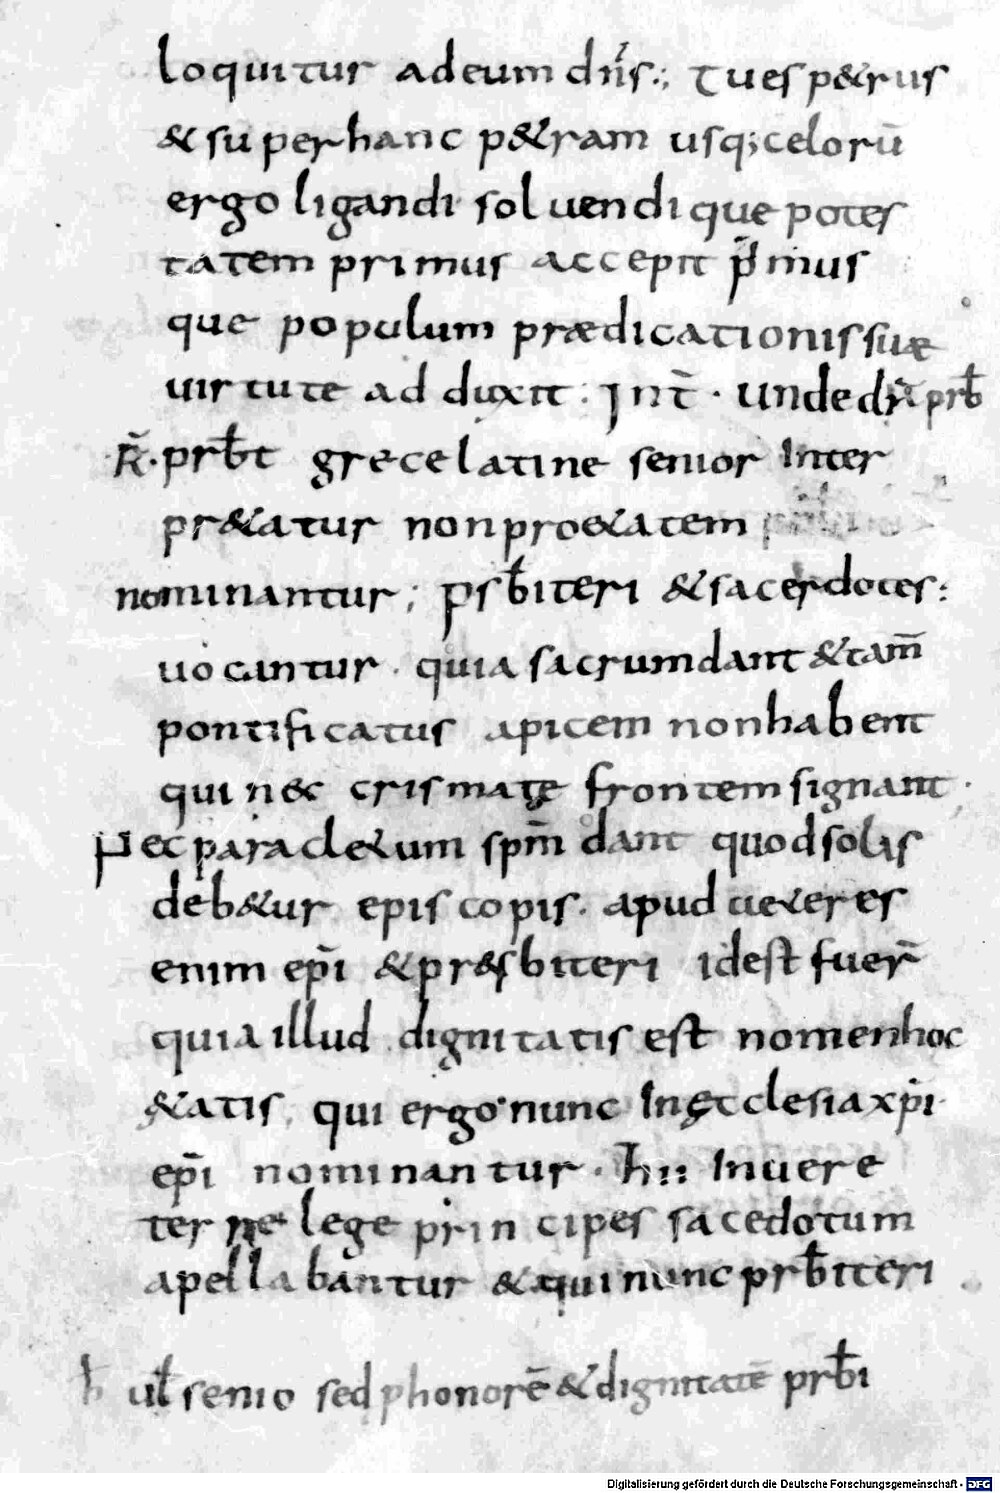 loquitur adeum dñs.; Tues p&rus
& super hanc p&ram usq; celorū
ergo ligandi soluendique potes
tatem primus accepit p̄ mus
que populum prædicationis suæ
uirtute ad duxit : Int̄ · unde dr̄ prb̄
R̄ · prb̄t grece latine senior Inter
pr&atur non pro&atem
nominantur ; psb̄iteri & sacerdotes :
uocantur · quia sacrum dant & tam̄
pontificatus apicem non habent
qui nec crismatę frontem signant ·
Nec paracl&um sp̄m dant quod solis
deb&ur episcopis · apud ueteres
enim ep̄i & pr&sbiteri idest fuer̄
quia illud dignitatis est nomen hoc
&atis , qui ergo nunc In ęcclesia xp̄i ·
ep̄i nominantur · hii Inuere
ter ne lege principes sacedotum
apellabantur & qui nunc prb̄iteri
ul̄ senio sed p honorē & dignitatē prb̄i
Digitalisierung gefördert durch die Deutsche Forschungsgemeinschaft - DFG